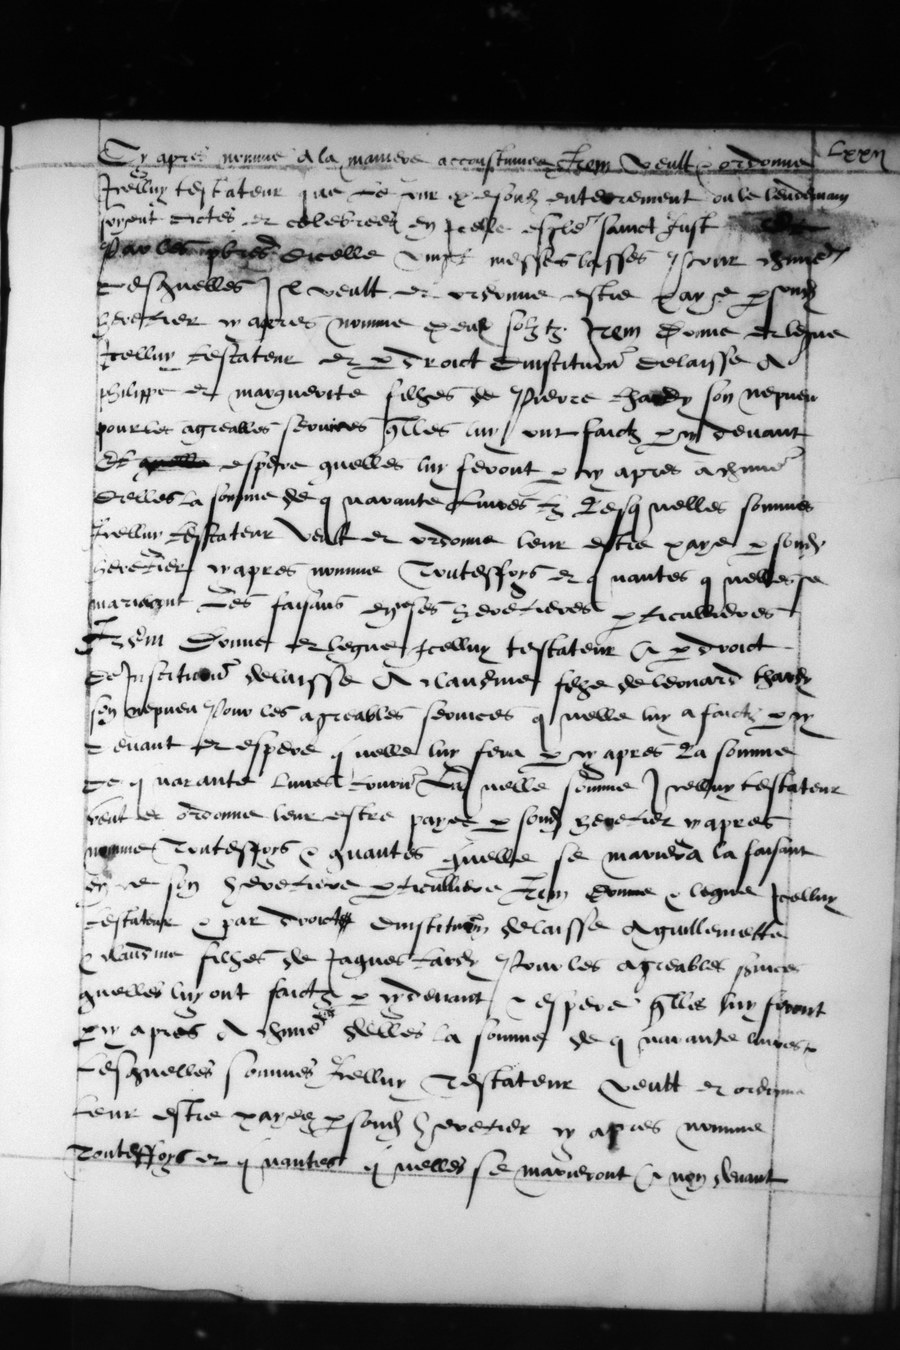 Cy apres nomme A la maniere accoustumee Item veult & ordonne
Icelluy testateur que le jour de sond enterrement ou le lendemain
soyent dictes et celebrees en icelle esgle sainct Just
Par les pbres dicelle vingt messes basses Pour chune
desquelles Il veult et ordonne estre paye p sond
heretier cy apres nomme deux solz tz Item Donne et legue
Icelluy testateur et p droict dinstitution delaisse A
philippe et marguerite filhes de Pierre thardy son nepveu
pour les agreables services qlles luy ont faictz p cy devant
Et espere quelles luy feront p cy apres a chune
dicelles la somme de quarante livres tz Lesquelles sommes
Icelluy testateur veult et ordonne leur estre paye p sond
heretier cy apres nomme Toutesfoys et quantes quelles se
marieront Les faisans en ses heretieres pticullieres
Item Donne et legue Icelluy testateur & p droict
de Institution delaisse A claudine filhe de leonard thardy
son nepveu Pour les agreables services quelle luy a faictz p cy
devant et espere quelle luy fera p cy apres La somme
de quarante livres tournoi Laquelle somme Icelluy testateur
veut et ordonne leur estre payee p sond heretier cy apres
nomme Toutesfoys & quantes quelle se mariera la faisant
en ce son heretiere pticulliere Item donne & legue Icelluy
testateur & par droict dinstitution delaisse A guillemette
& claudine filhes de Jaques tardy Pour les agreables svices
quelles luy ont faictz p cy devant & espere qlles luy feront
p cy apres A chune delles la somme de quarante livres tz
Lesquelles sommes Icelluy Testateur veult et ordonne
leur estre payees p sond heretier cy apres nomme
Toutesfoys et quantes quelles se marieront & non devant